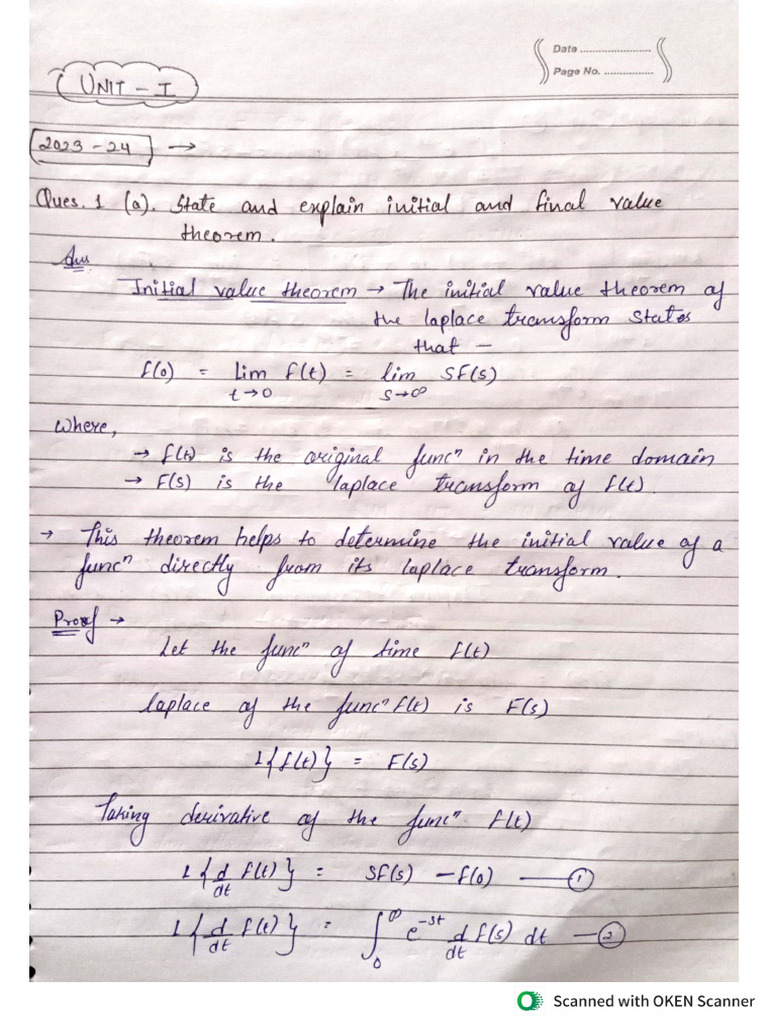 Date ......................
Page No. ...............
UNIT - I
2023 - 24 →
Ques. 1 (a). State and explain initial and final value
theorem.
Ans
Initial value theorem → The initial value theorem of
the laplace transform states
that —
f(0) = lim t→0 f(t) = lim s→∞ SF(s)
where,
→ f(t) is the original funcⁿ in the time domain
→ F(s) is the laplace transform of f(t).
→ This theorem helps to determine the initial value of a
funcⁿ directly from its laplace transform.
Proof →
Let the funcⁿ of time f(t)
laplace of the funcⁿ f(t) is F(s)
L{f(t)} = F(s)
Taking derivative of the funcⁿ f(t)
L{d/dt f(t)} = SF(s) - f(0) —— ①
L{d/dt f(t)} = ∫₀^∞ e^-st d/dt f(s) dt — ②
Scanned with OKEN Scanner